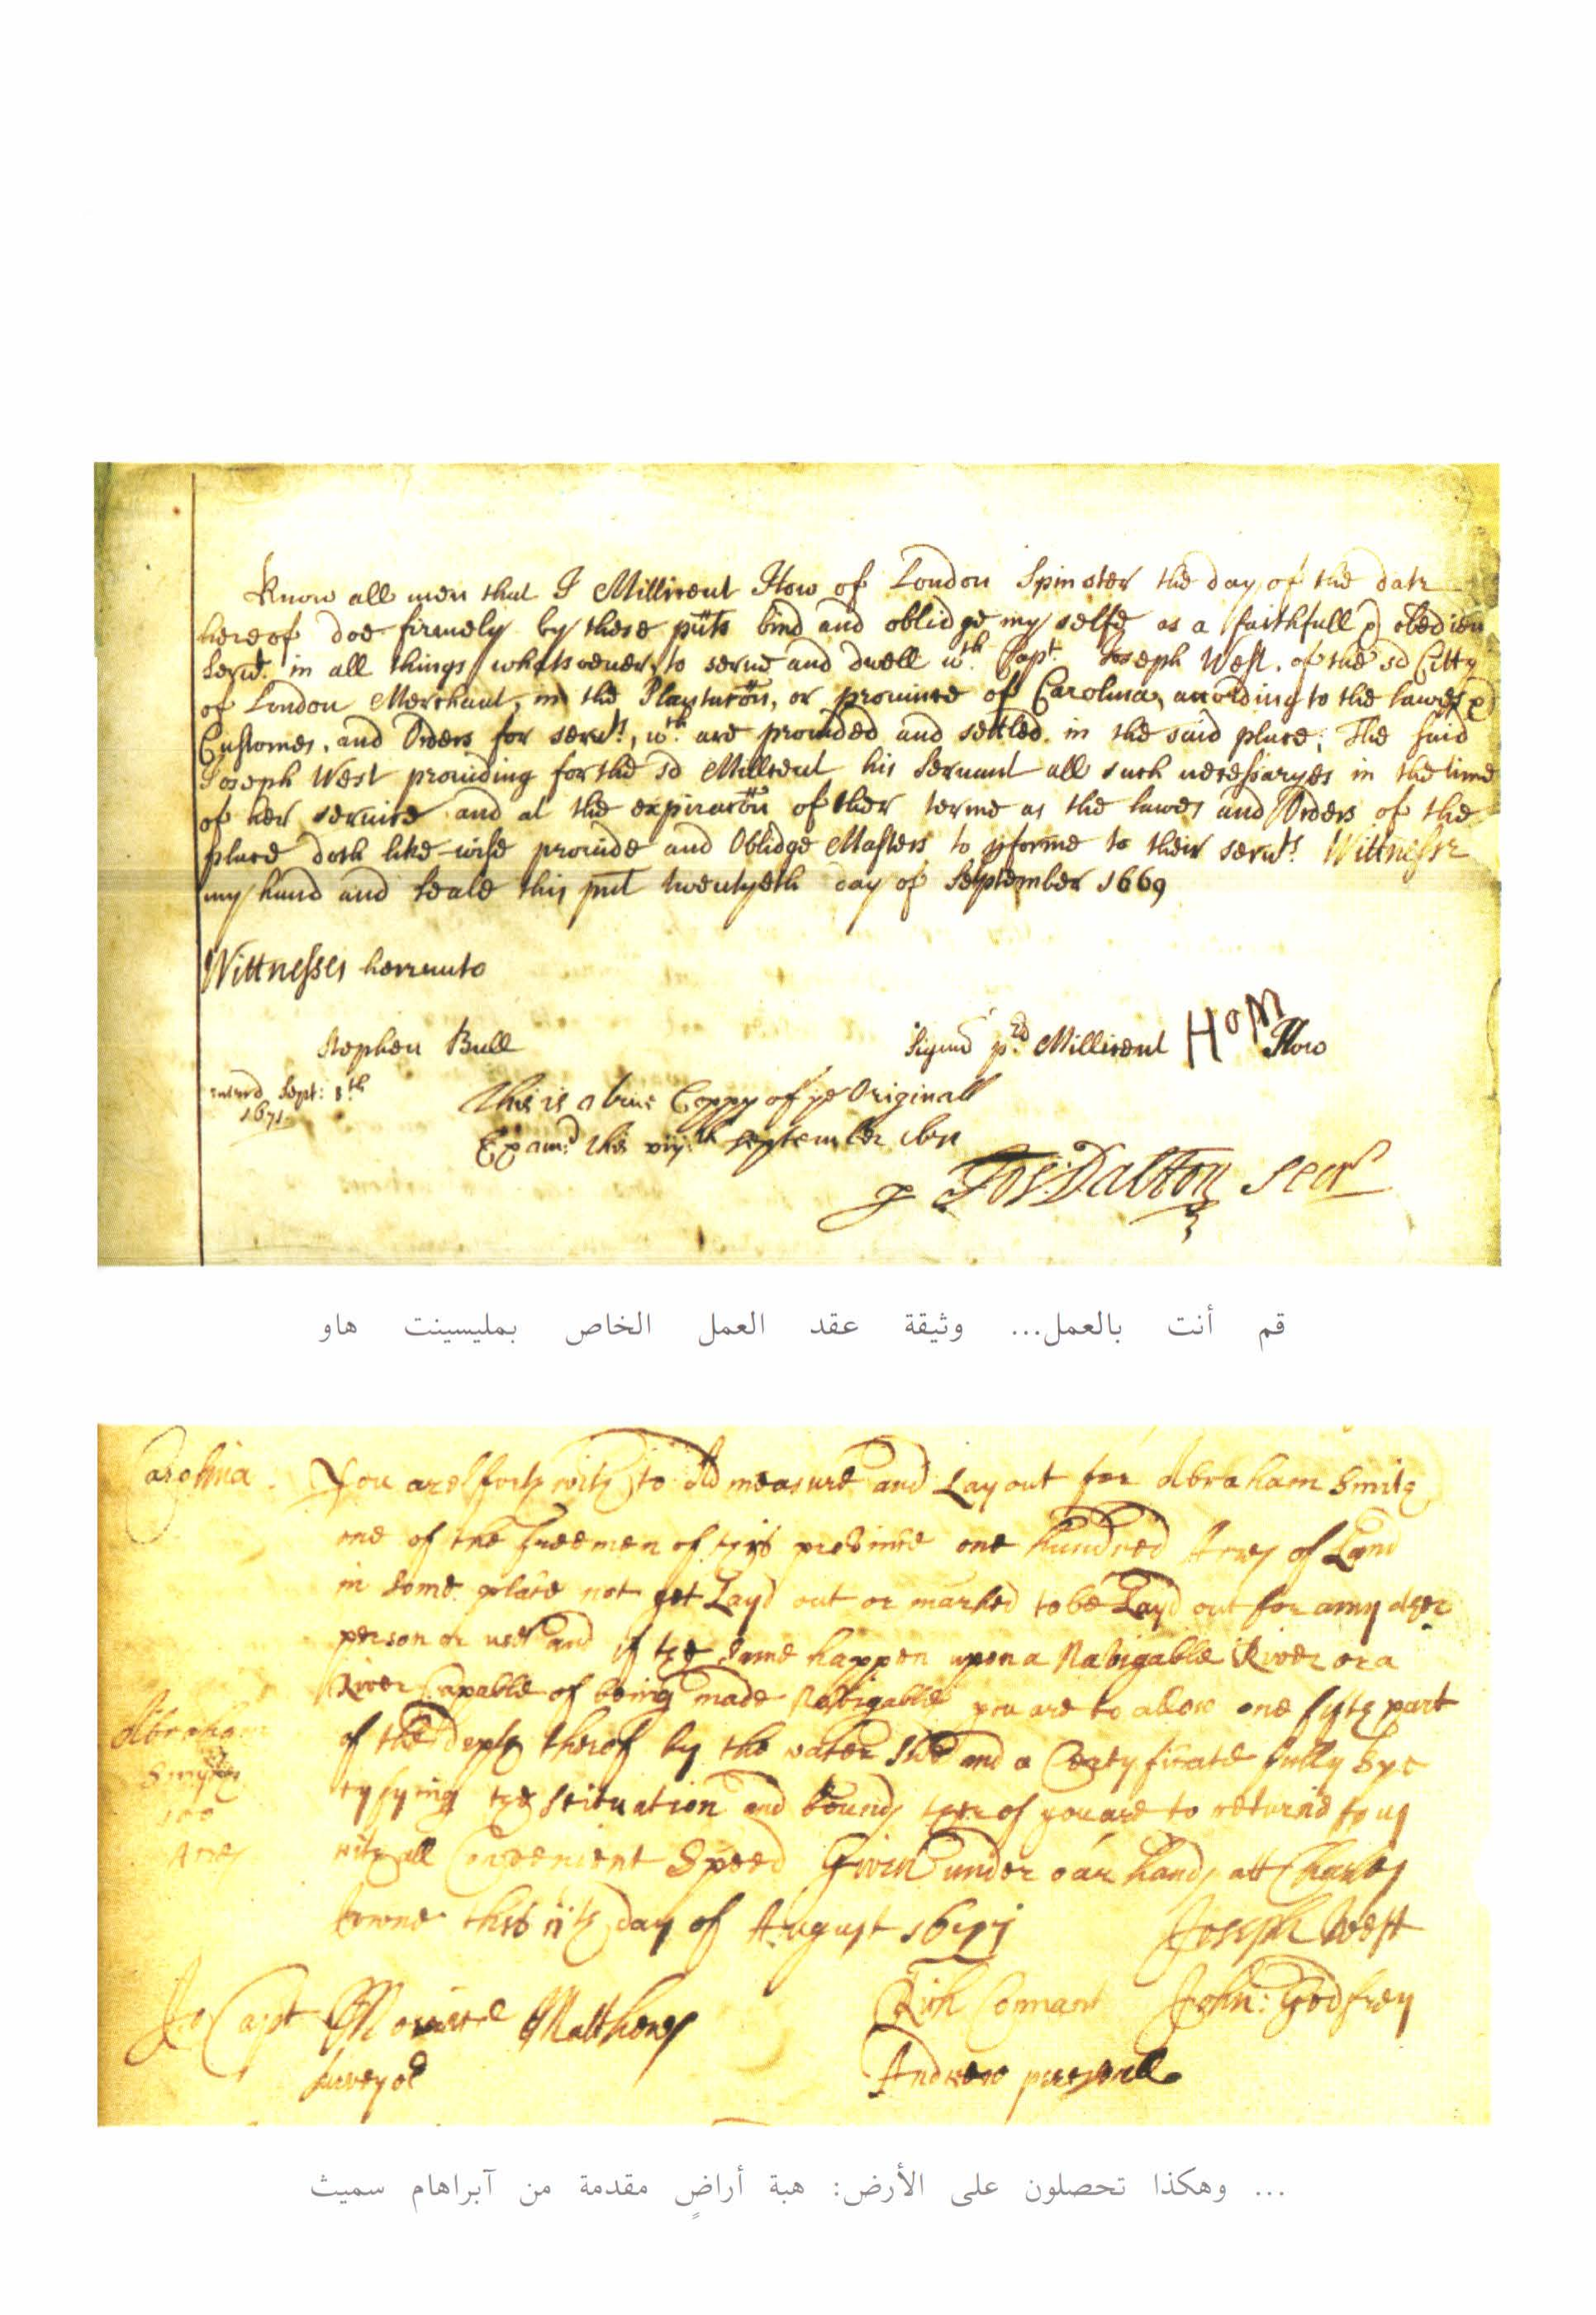 Know all men that I Millicent How of London Spinster the day of the date
hereof doe firmely by these pñts bind and oblidge my selfe as a faithfull & obedien
Servt. in all things whatsoever, to serve and dwell wth Capt. Joseph West. of the sd Citty
of London Merchant, in the Plantacōn, or province of Carolina, according to the lawes &
Customes, and Orders for servts, wch are provided and settled in the said place; The said
Joseph West providing for the sd Millicent his Servant all such necessaryes in the time
of her service and at the expiracōn of ther terme as the lawes and Orders of the
place doth like-wise provide and Oblidge Masters to pforme to their servts. Wittnesse
my hand and seale this pnt twentyeth day of September 1669
Wittnesses hereunto
Stephen Bull
Signed pr. Millicent HOM How
record Sept: 8th
1671
This is a true Coppy of ye Originall
Examd. this viijth September 1671
p Jos: Dalton Secry
قم أنت بالعمل... وثيقة عقد العمل الخاص بمليسينت هاو
Carolina.
You are forthwith to measure and Lay out for Abraham Smith
one of the freemen of this province one hundred Acres of Land
in some place not yet Layd out or marked to be Layd out for any other
person or use and if the same happen upon a Navigable River or a
River Capable of being made Navigable you are to allow one fifth part
of the depth therof by the water side and a Certyficate fully Spe
cyfying the scituation and bounds therof you are to returne to us
with all Convenient Speed Given under our hands att Charles
towne this 11th day of August 1671
Abraham
Smythes
100
Acres
Joseph West
To Capt Mourice Mathews
surveyor
Rich Connant
John: Godfrey
Andrew percevall
... وهكذا تحصلون على الأرض: هبة أراضٍ مقدمة من آبراهام سميث